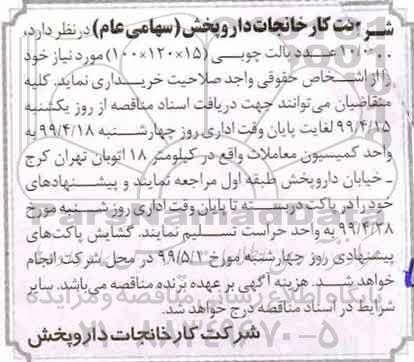 شرکت کارخانجات داروپخش (سهامی عام) در نظر دارد،
۱۰۰۰۰ عدد پالت چوبی (۱۵×۱۲۰×۱۰۰) مورد نیاز خود
را از اشخاص حقوقی واجد صلاحیت خریداری نماید. کلیه
متقاضیان می‌توانند جهت دریافت اسناد مناقصه از روز یکشنبه
۹۹/۴/۱۵ لغایت پایان وقت اداری روز چهارشنبه ۹۹/۴/۱۸ به
واحد کمیسیون معاملات واقع در کیلومتر ۱۸ اتوبان تهران کرج
- خیابان داروپخش طبقه اول مراجعه نمایند و پیشنهادهای
خود را در پاکت دربسته تا پایان وقت اداری روز شنبه مورخ
۹۹/۴/۲۸ به واحد حراست تسلیم نمایند. گشایش پاکت‌های
پیشنهادی روز چهارشنبه مورخ ۹۹/۵/۱ در محل شرکت انجام
خواهد شد. هزینه آگهی بر عهده برنده مناقصه می‌باشد. سایر
شرایط در اسناد مناقصه درج خواهد شد.
شرکت کارخانجات داروپخش
ParsNamadData
پایگاه اطلاع رسانی مناقصه و مزایده
۰۲۱-۸۸۳۴۹۶۷۰-۵